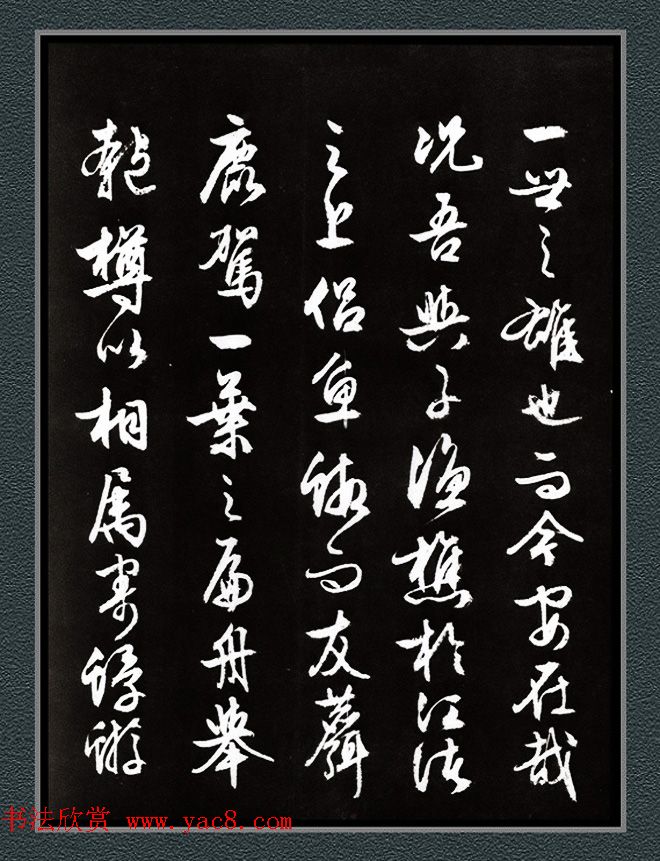 一世之雄也而今安在哉
况吾與子漁樵於江渚
之上侣魚蝦而友麋
鹿駕一葉之扁舟舉
匏樽以相属寄蜉蝣
书法欣赏 www.yac8.com